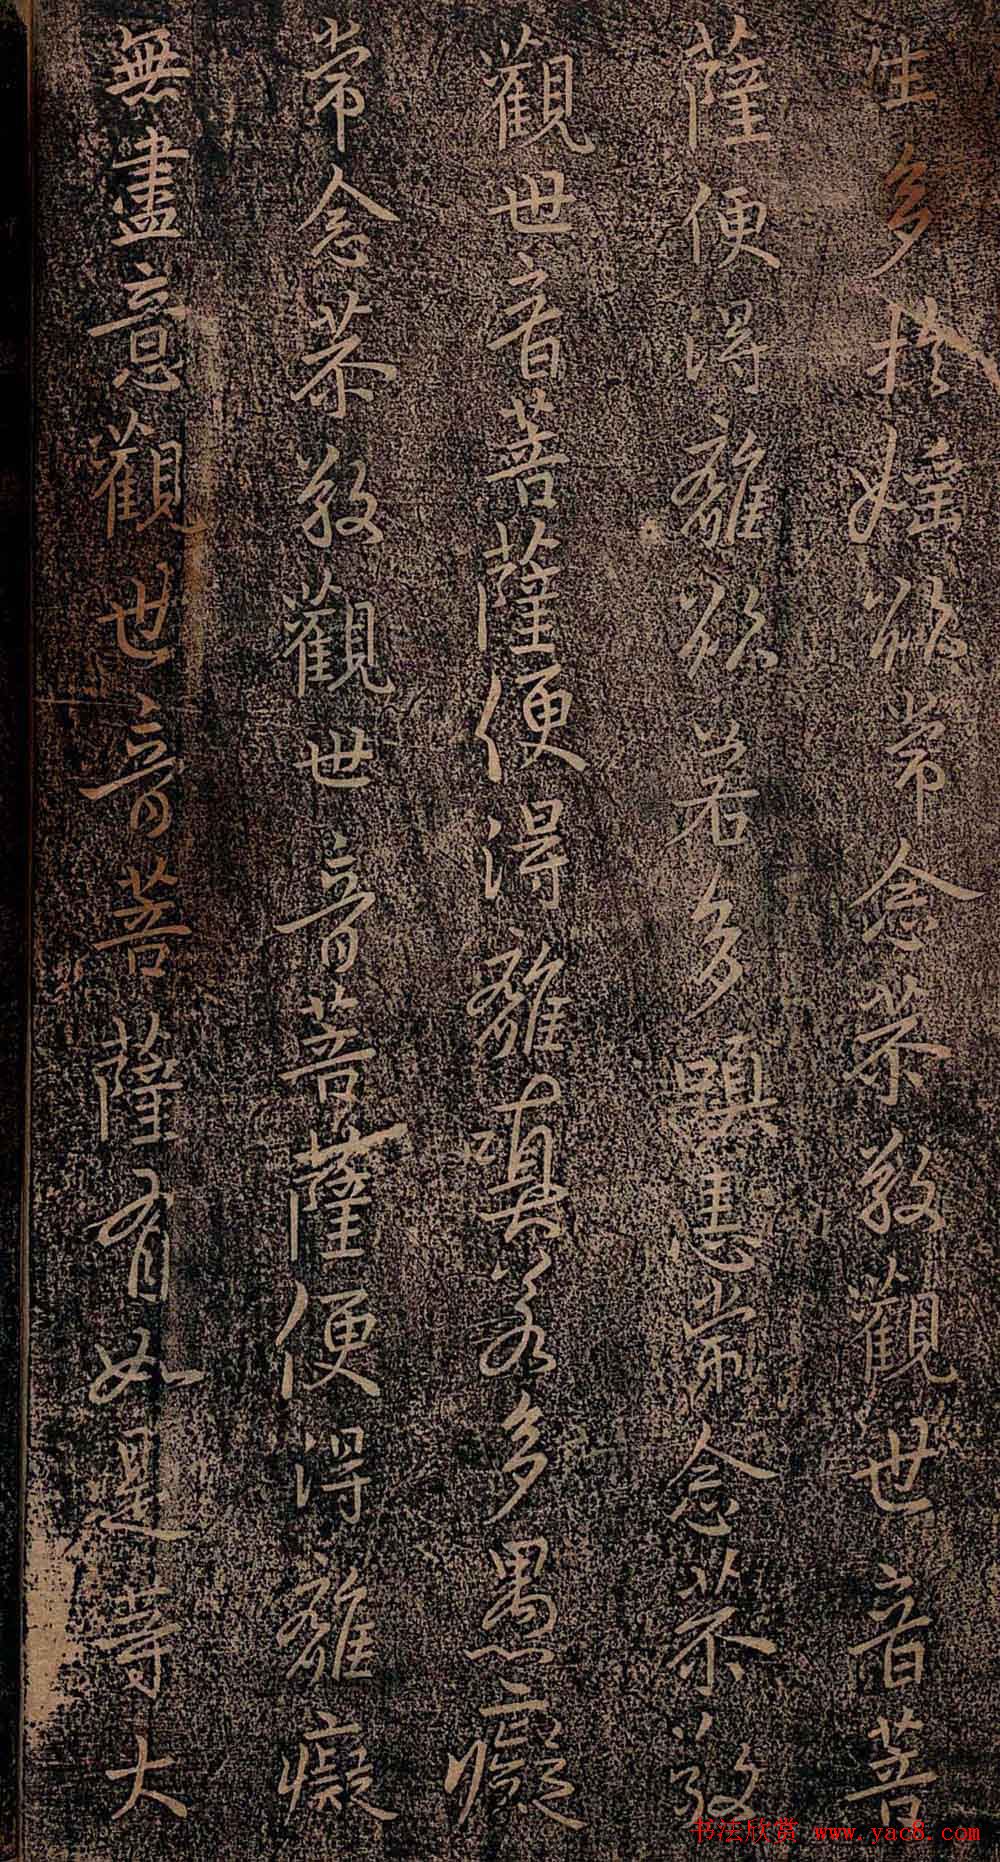 生多於婬欲常念恭敬觀世音菩
薩便得離欲若多瞋恚常念恭敬
觀世音菩薩便得離瞋若多愚癡
常念恭敬觀世音菩薩便得離癡
無盡意觀世音菩薩有如是等大
书法欣赏 www.yac8.com